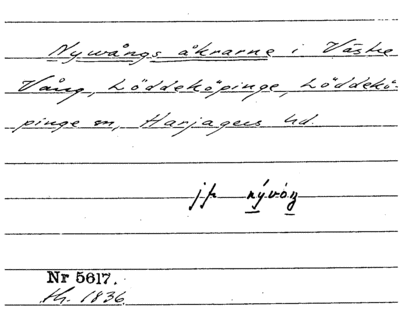 Nywångs åkrarne i Västre
Vång, Löddeköpinge, Löddekö-
pinge sn, Harjagers hd.
jfr nývóŋ
Nr 5617.
th. 1836